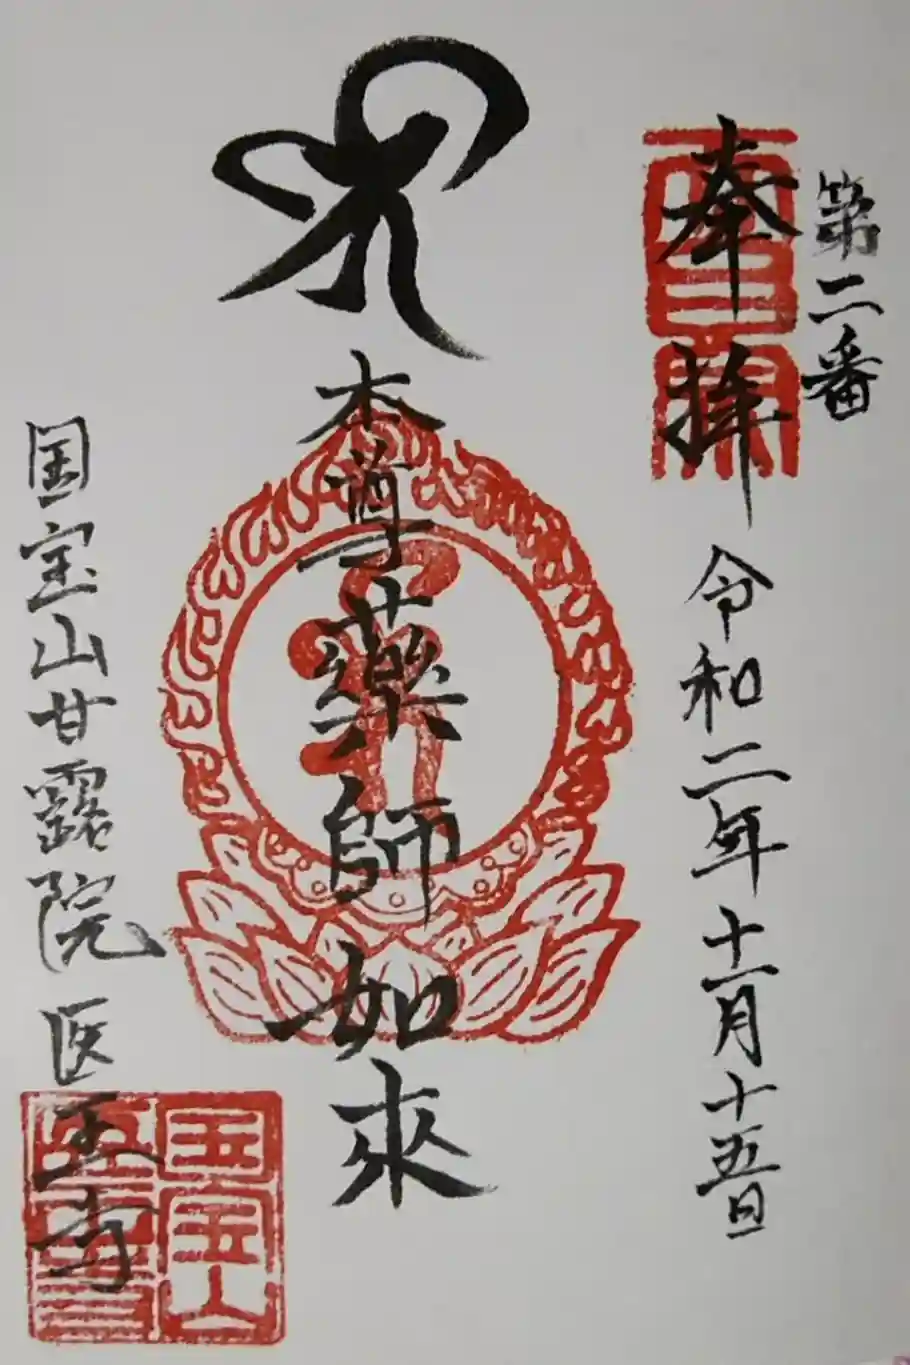 第二番
奉拝
令和二年十一月十五日
本尊薬師如來
国宝山甘露院医王寺